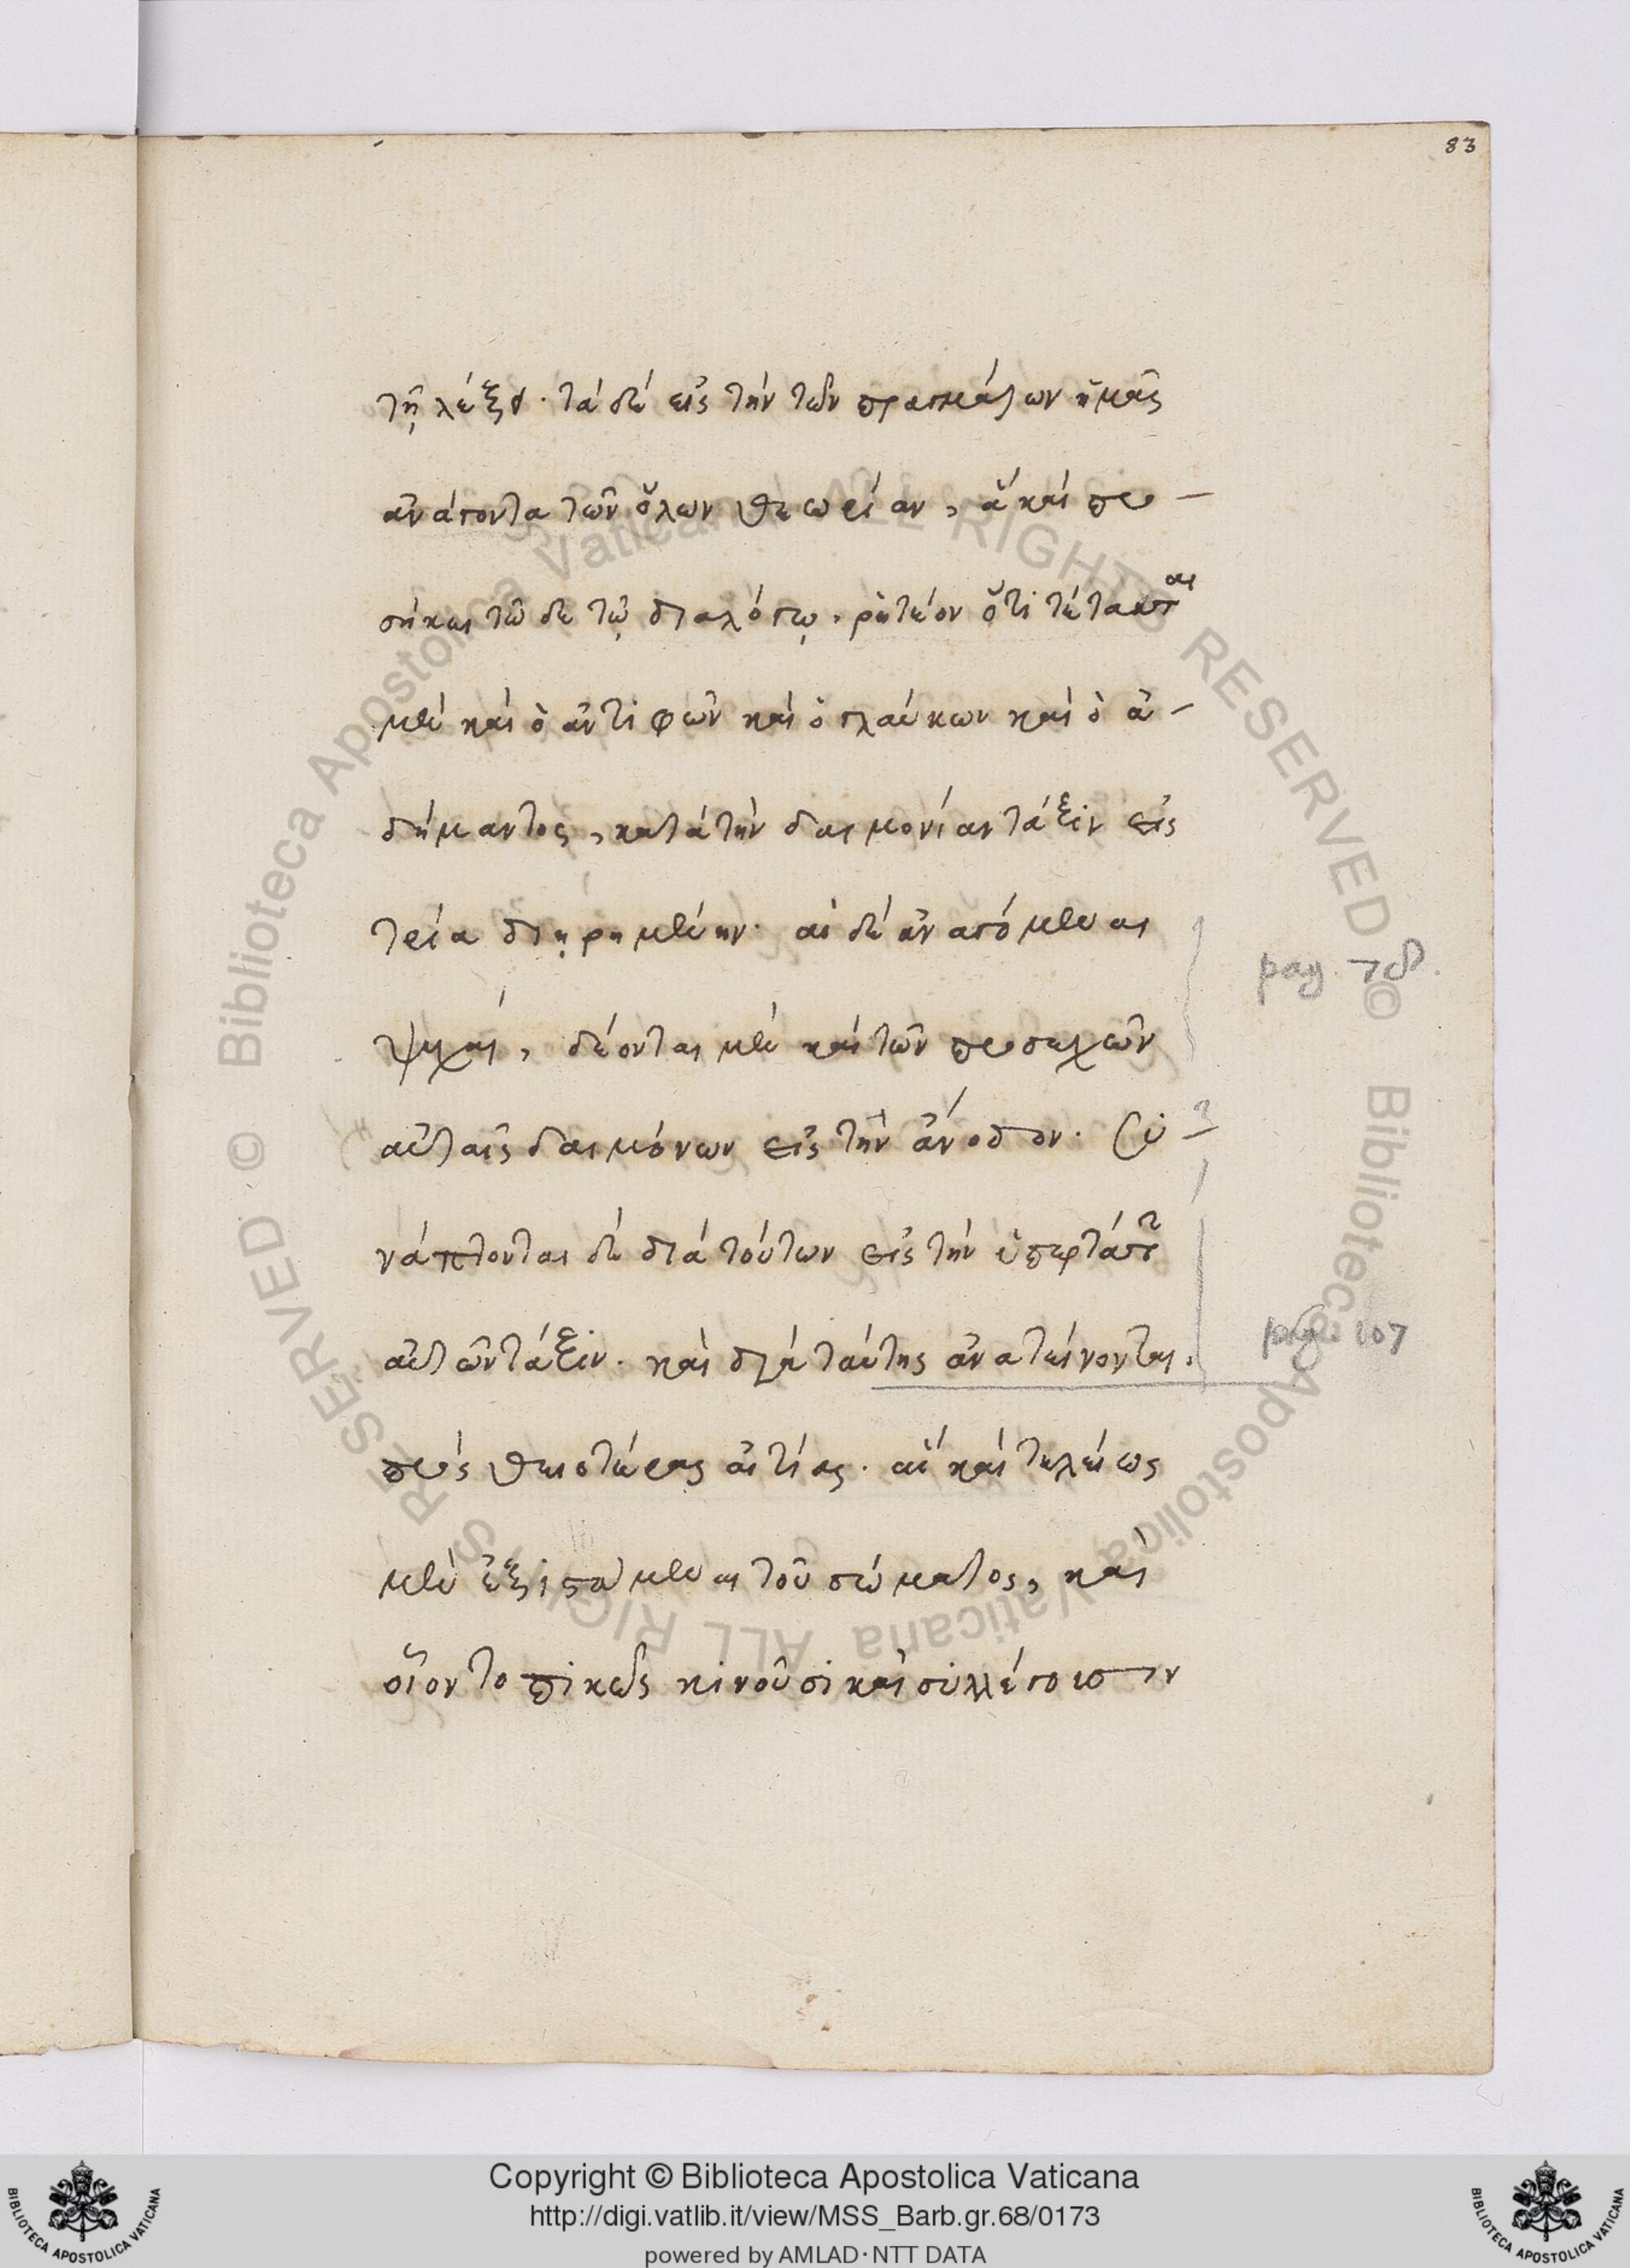 83
τῇ λέξει· τὰ δὲ εἰς τὴν τῶν πραγμάτων ἡμᾶς
ἀνάγοντα τῶν ὅλων θεωρίαν, ἃ καὶ προ-
σήκει τῶδε τῷ διαλόγῳ. ῥητέον ὅτι τέτακται
μὲν καὶ ὁ ἀντιφῶν καὶ ὁ γλαύκων καὶ ὁ ἀ-
δήμαντος, κατὰ τὴν δαιμονίαν τάξιν εἰς
τρία διῃρημένην· αἱ δὲ ἀναγόμεναι
ψυχαὶ, δέονται μὲν καὶ τῶν προσεχῶν
αὐταῖς δαιμόνων εἰς τὴν ἄνοδον. Συ-
pag. 78.
νάπτονται δὲ διὰ τούτων εἰς τὴν ὑπερτάτην
αὐτῶν τάξιν. καὶ διὰ ταύτης ἀνατείνονται.
pag. 107
πρὸς θειοτέρας αἰτίας. αἳ καὶ τελείως
μὲν ἐξιστάμεναι τοῦ σώματος, καὶ
οἷον τοπικῶς κινοῦσι καὶ συλλέγουσιν
Copyright © Biblioteca Apostolica Vaticana
http://digi.vatlib.it/view/MSS_Barb.gr.68/0173
powered by AMLAD·NTT DATA
BIBLIOTECA APOSTOLICA VATICANA
BIBLIOTECA APOSTOLICA VATICANA
© Biblioteca Apostolica Vaticana ALL RIGHTS RESERVED © Biblioteca Apostolica Vaticana ALL RIGHTS RESERVED